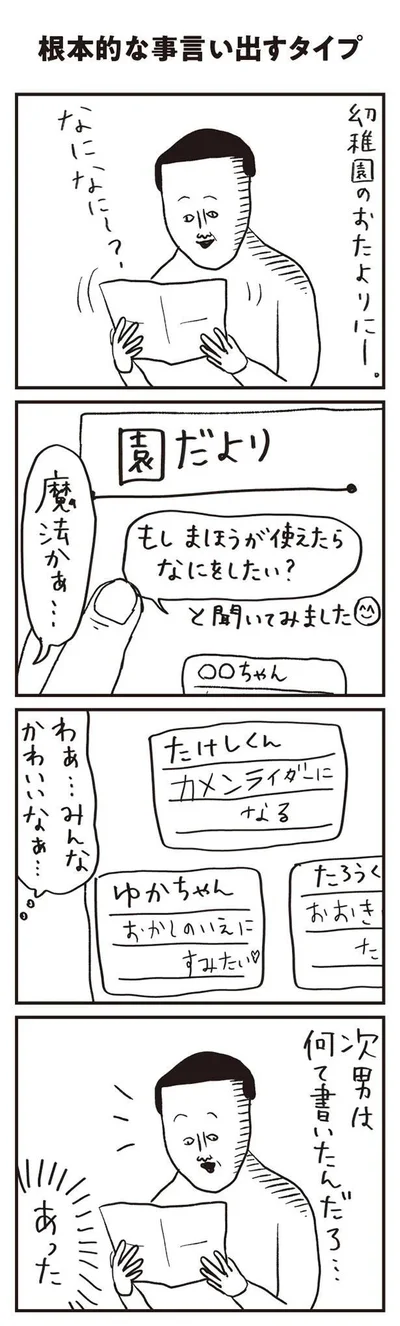 根本的な事言い出すタイプ
幼稚園のおたよりにー。
なになにー？
園だより
もし まほうが使えたら
なにをしたい？
と聞いてみました
魔法かぁ…
〇〇ちゃん
たけしくん
カメンライダーに
なる
わぁ…みんな
かわいいなぁ…
たろうく
おおき
た
ゆかちゃん
おかしのいえに
すみたい♡
次男は
何て書いたんだろ…
あった